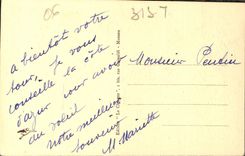 06
3157
à bientôt votre
tour, je vous
conseille la côte
d'azur pour avoir
du soleil
notre meilleur
souvenir
M. Mariette
Monsieur Pendin